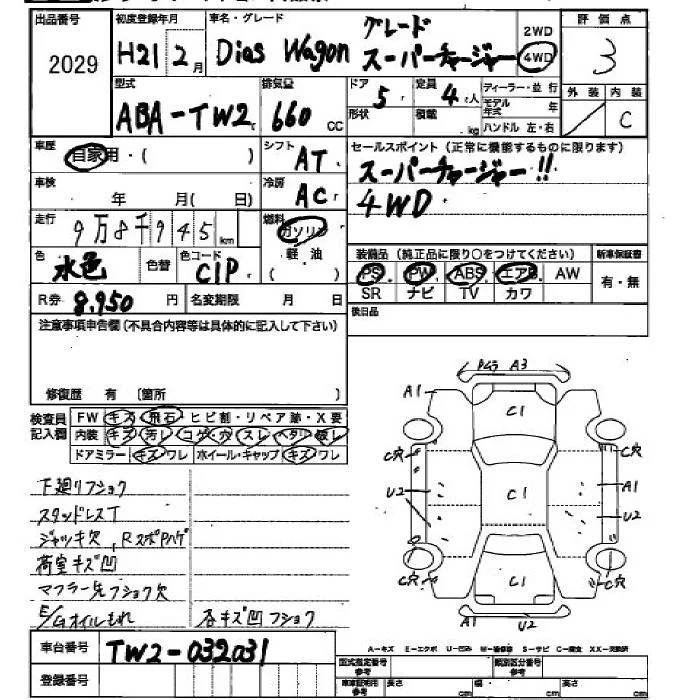 出品番号 初度登録年月 車名・グレード グレード 2WD 評価点
2029 H21 2月 Dias Wagon スーパーチャージャー 4WD 3
型式 排気量 ドア 定員 ディーラー・並行 外装 内装
ABA-TW2 660 CC 5 4人 モデル年式 年
形状 積載 kg ハンドル 左・右 C
車歴 自家用・( ) シフト AT セールスポイント(正常に機能するものに限ります)
スーパーチャージャー!!
車検 年 月( 日) 冷房 AC 4WD
走行 9万8千945km 燃料 ガソリン
軽油
( )
色 水色 色替 色コード C1P
装備品(純正品に限り○をつけてください) 新車保証書
PS PW ABS エアB AW 有・無
SR ナビ TV カワ
R券 8,950円 名変期限 月 日
後日品
注意事項申告欄(不具合内容等は具体的に記入して下さい)
修復歴 有 〔箇所 〕
検査員記入欄 FW キズ・飛石・ヒビ割・リペア跡・X要
内装 キズ・汚レ・コゲ・穴・スレ・ヘタリ・破レ
ドアミラー キズ・ワレ ホイール・キャップ キズ・ワレ
下廻リフショク
スタッドレスT
ジャッキ欠、RスポPハゲ
荷室キズ凹
マフラー先フショク欠
E/Gオイルもれ 各キズ凹フショク
A3
A1 C1
C穴 C穴
U2 C1 A1
U2
C穴 C1 C穴
A1 U2
車台番号 TW2-032031
登録番号
A-キズ E-エクボ U-凹み W-補修跡 S-サビ C-腐食 XX-交換済
型式指定番号 類別区分番号
車庫証明用参考 長さ cm 幅 cm 高さ cm